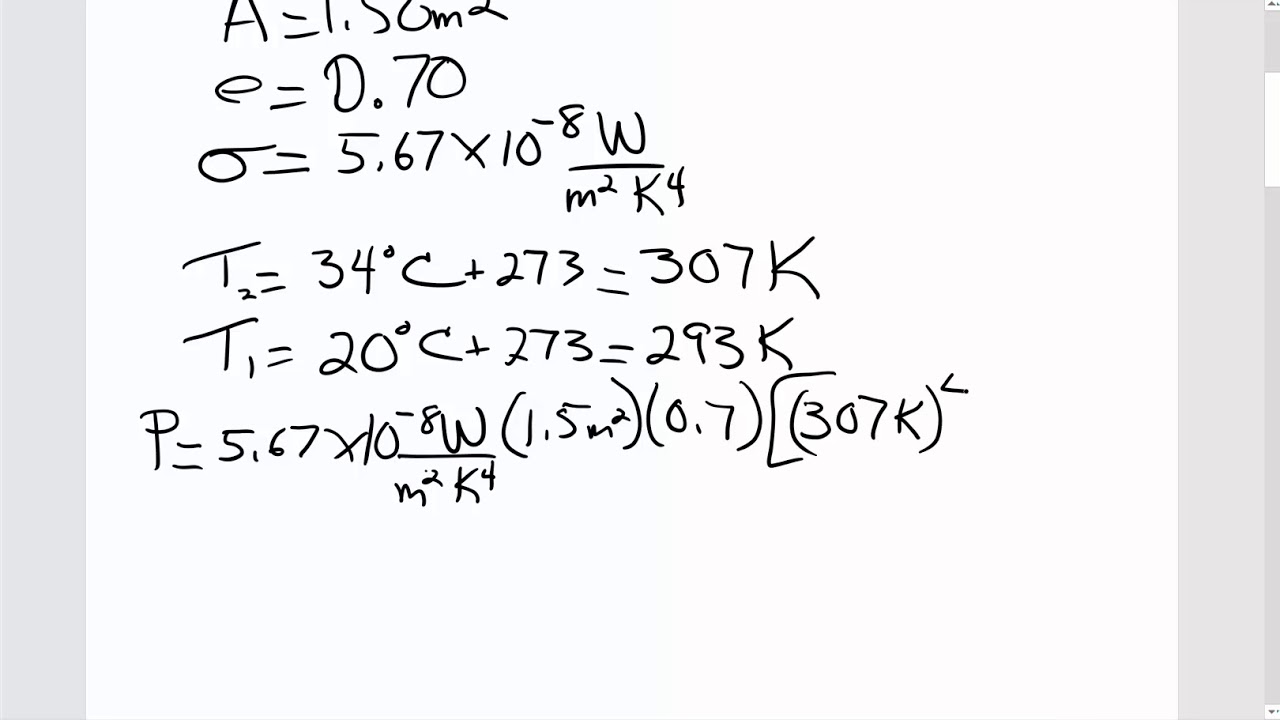 A = 1.50m²
e = 0.70
σ = 5.67 × 10⁻⁸ W/m² K⁴
T₂ = 34°C + 273 = 307 K
T₁ = 20°C + 273 = 293 K
P = 5.67 × 10⁻⁸ W/m² K⁴ (1.5m²)(0.7)[(307K)